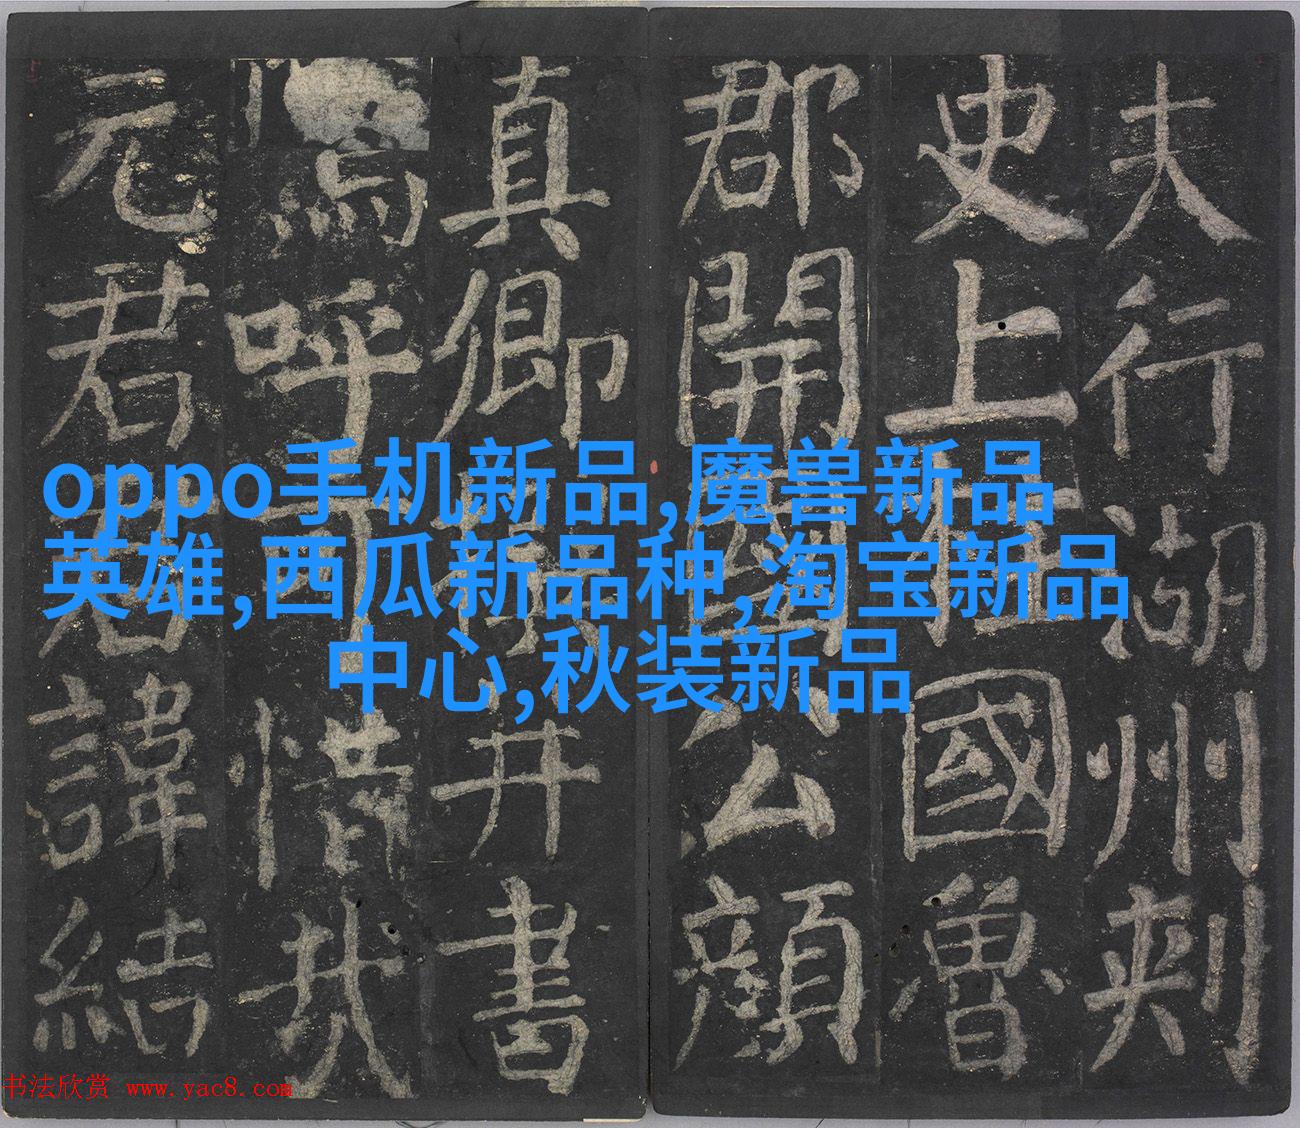 夫行湖州刺
史上柱國魯
郡開國公顏
真卿撰并書
嗚呼可惜哉
元君君諱結
oppo手机新品,魔兽新品
英雄,西瓜新品种,淘宝新品
中心,秋装新品
书法欣赏 www.yac8.com